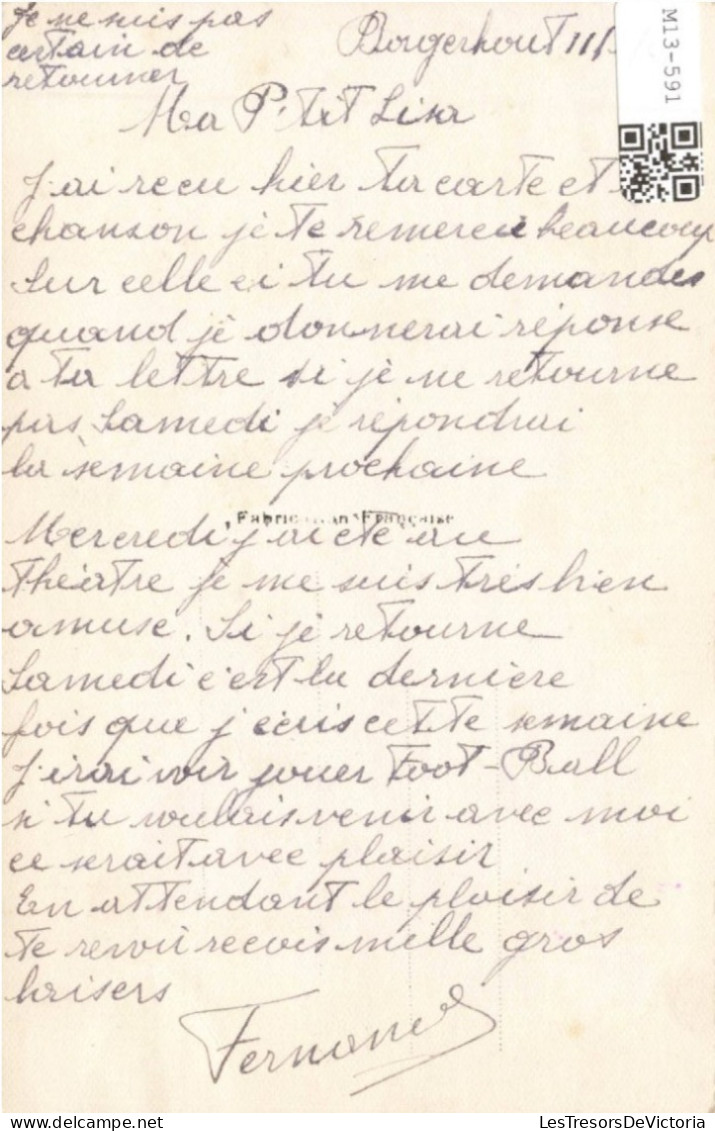 Je ne suis pas
certain de
retourner
Borgerhout 11/
M13-591
Ma P'tit Lisa
J'ai recu hier ta carte et
chanson je te remercie beaucoup
Sur celle ci tu me demandes
quand je donnerai réponse
a ta lettre si je ne retourne
pas Samedi je répondrai
la semaine prochaine
Fabrication Française
Mercredi j'ai été au
théâtre je me suis très bien
amuse. Si je retourne
Samedi c'est la dernière
fois que j'écris cette semaine
J'irai voir jouer Foot-Ball
si tu voulais venir avec moi
ce serait avec plaisir
En attendant le plaisir de
te revoir recois mille gros
baisers
Fernand
LesTresorsDeVictoria